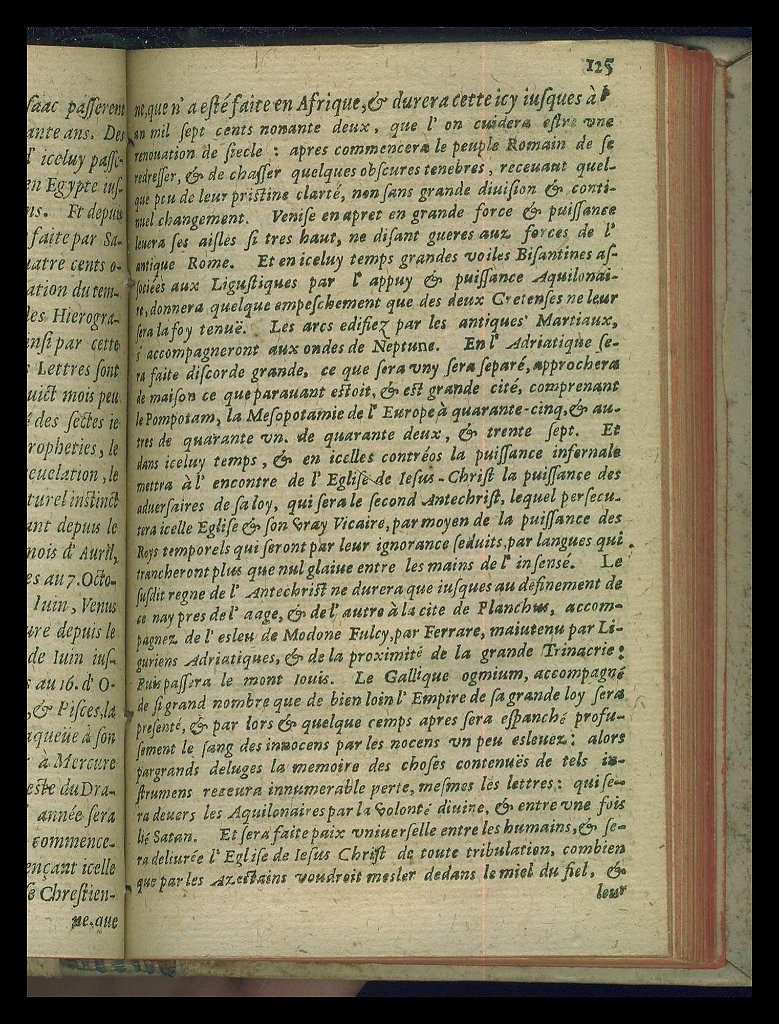 saac passerent
ante ans. Des
d' iceluy passe-
en Egypte ius-
ns. Et depuis
faite par Sa-
uatre cents o-
ation du tem-
les Hierogra-
ensi par cette
Lettres sont
uict mois peu
des sectes ie
ropheties, le
euelation, le
turel instinct
ant depuis le
mois d' Auril,
es au 7. Octo-
Iuin, Venus
ure depuis le
de Iuin ius-
au 16. d' O-
, & Pisces, la
queuë à son
à Mercure
este du Dra-
année sera
commence-
ençant icelle
se Chrestien-
ne, que
125
ne, que n' a esté faite en Afrique, & durera cette icy iusques à l'
an mil sept cents nonante deux, que l' on cuidera estre vne
renouation de siecle : apres commencera le peuple Romain de se
redresser, & de chasser quelques obscures tenebres, receuant quel-
que peu de leur pristine clarté, non sans grande diuision & conti-
nuel changement. Venise en apret en grande force & puissance
leuera ses aisles si tres haut, ne disant gueres aux forces de l'
antique Rome. Et en iceluy temps grandes voiles Bisantines as-
sociées aux Ligustiques par l' appuy & puissance Aquilonai-
re, donnera quelque empeschement que des deux Cretenses ne leur
sera la foy tenuë. Les arcs edifiez par les antiques Martiaux,
s' accompagneront aux ondes de Neptune. En l' Adriatique se-
ra faite discorde grande, ce que sera vny sera separé, approchera
de maison ce que parauant estoit, & est grande cité, comprenant
le Pompotam, la Mesopotamie de l' Europe à quarante-cinq, & au-
tres de quarante vn. de quarante deux, & trente sept. Et
dans iceluy temps, & en icelles contréos la puissance infernale
mettra à l' encontre de l' Eglise de Iesus-Christ la puissance des
aduersaires de sa loy, qui sera le second Antechrist, lequel persecu-
tera icelle Eglise & son vray Vicaire, par moyen de la puissance des
Roys temporels qui seront par leur ignorance seduits, par langues qui
trancheront plus que nul glaiue entre les mains de l' insensé. Le
susdit regne de l' Antechrist ne durera que iusques au definement de
ce nay pres de l' aage, & de l' autre à la cite de Planchus, accom-
pagnez de l' esleu de Modone Fulcy, par Ferrare, maiutenu par Li-
guriens Adriatiques, & de la proximité de la grande Trinacrie:
Puis passera le mont Iouis. Le Gallique ogmium, accompagné
de si grand nombre que de bien loin l' Empire de sa grande loy sera
presenté, & par lors & quelque cemps apres sera espanché profu-
sement le sang des innocens par les nocens vn peu esleuez : alors
par grands deluges la memoire des choses contenuës de tels in-
strumens receura innumerable perte, mesmes les lettres : qui se-
ra deuers les Aquilonaires par la volonté diuine, & entre vne fois
lié Satan. Et sera faite paix vniuerselle entre les humains, & se-
ra deliurée l' Eglise de Iesus Christ de toute tribulation, combien
que par les Azestains voudroit mesler dedans le miel du fiel, &
leur